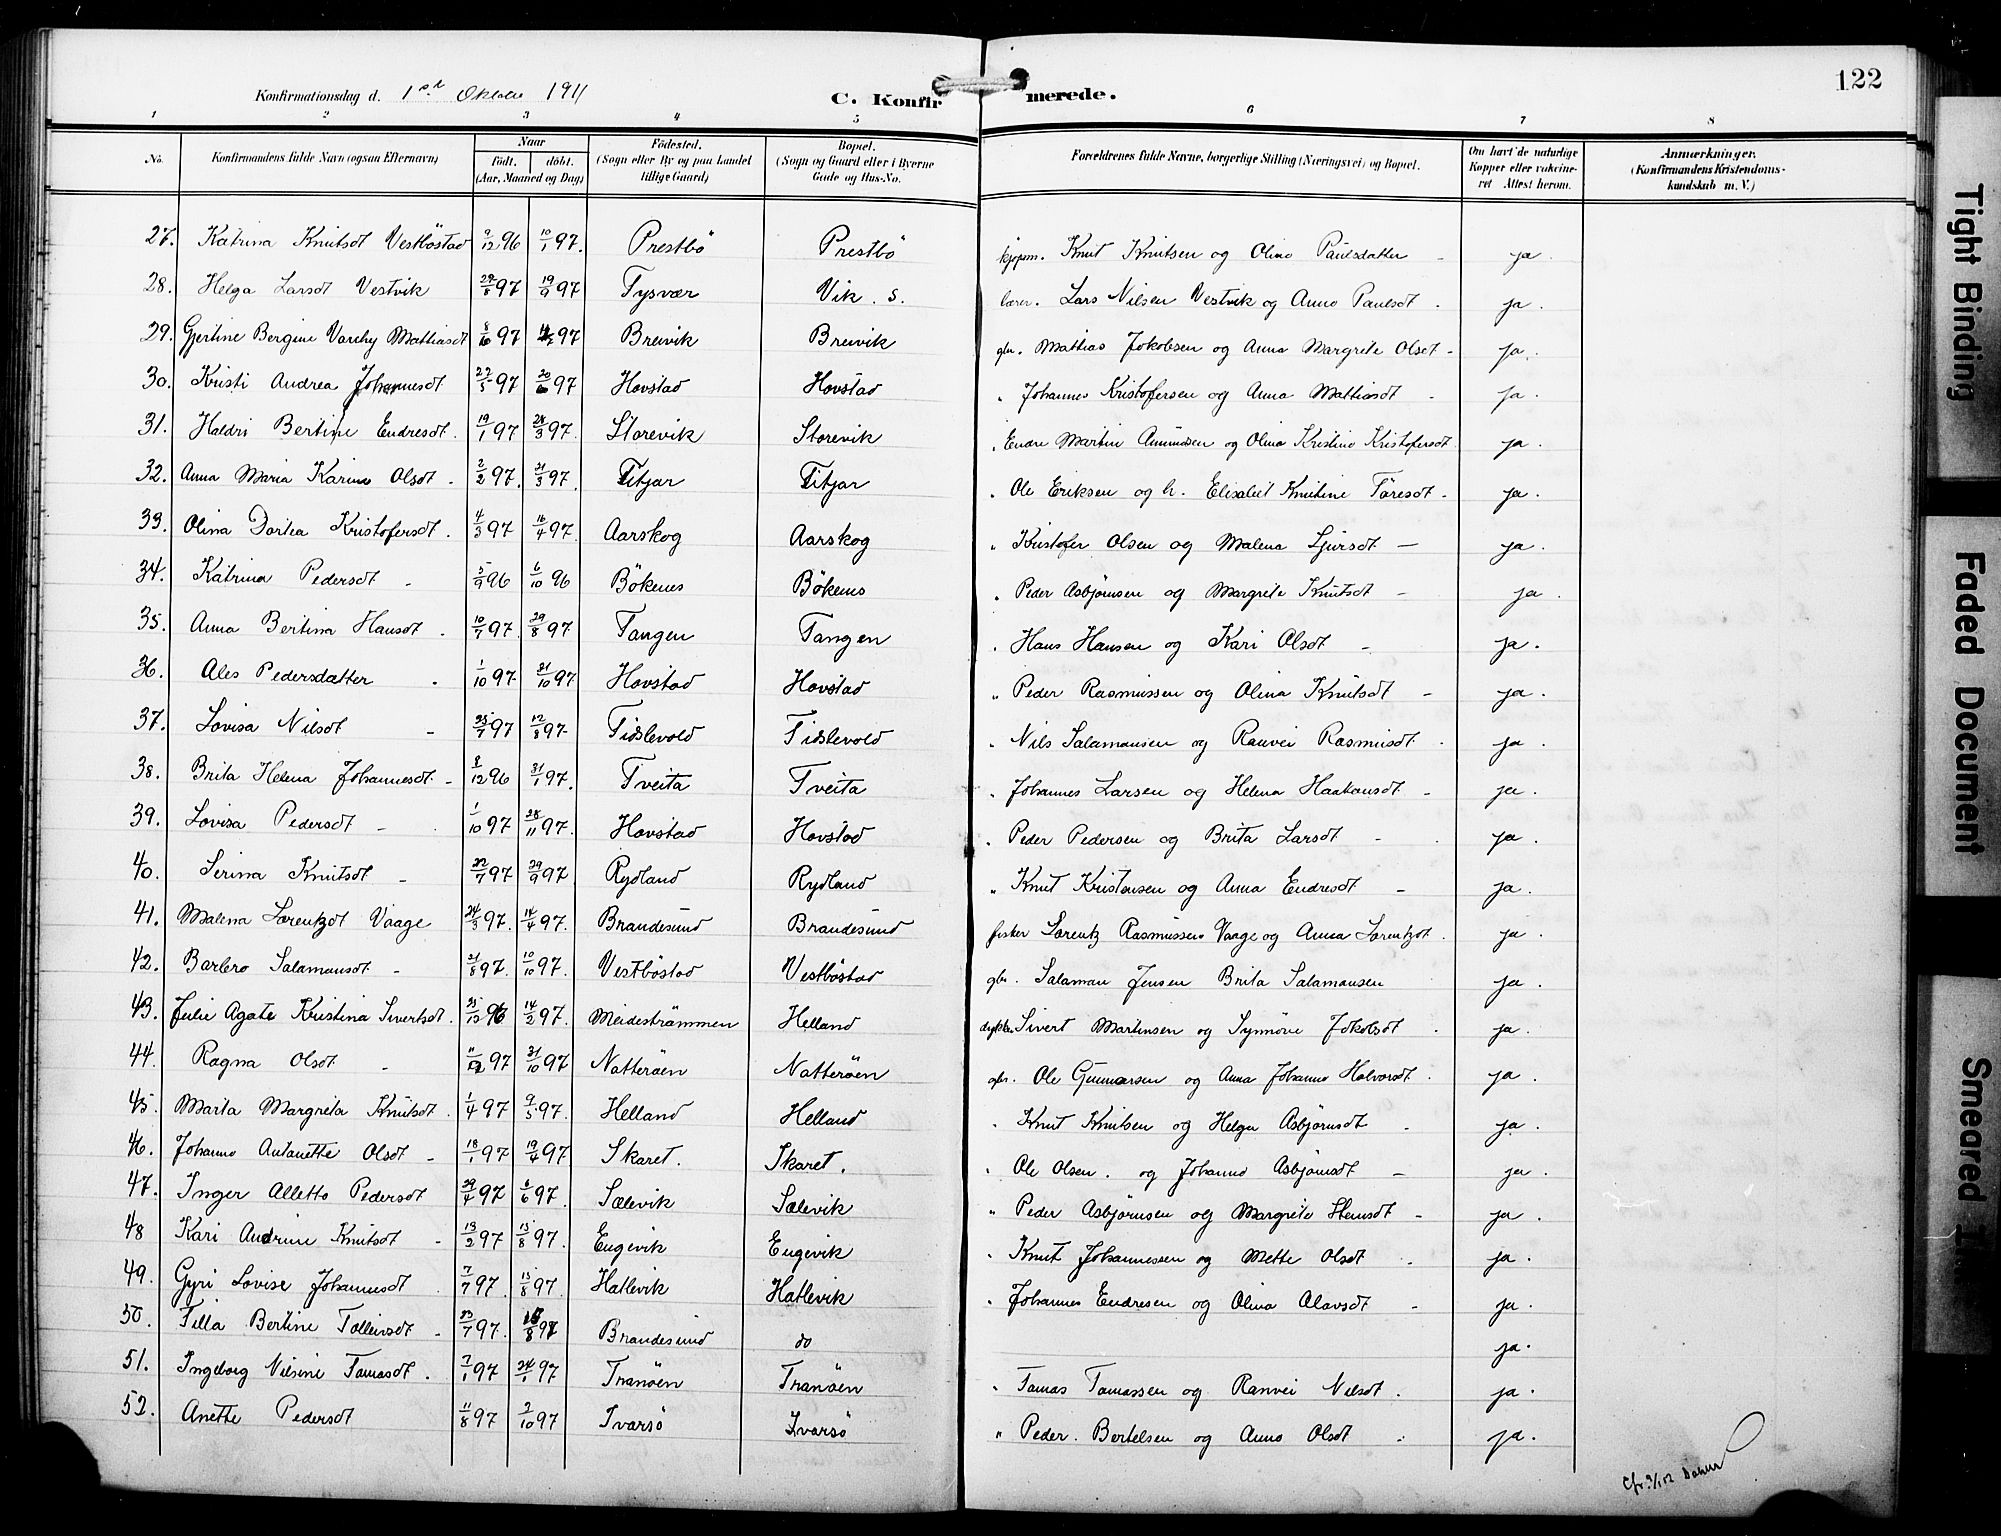 122
Konfirmationsdag d. 1ste Oktober 1911 C. Konfirmerede.
1 2 3 4 5 6 7 8
No. Konfirmandens fulde Navn (ogsaa Efternavn) Naar født. døbt. (Aar, Maaned og Dag) Fødested. (Sogn eller By og paa Landet tillige Gaard) Bopæl. (Sogn og Gaard eller i Byerne Gade og Hus-No. Forældrenes fulde Navne, borgerlige Stilling (Næringsvei) og Bopæl. Om havt de naturlige Kopper eller vakcineret Attest herom. Anmærkninger. (Konfirmandens Kristendomskundskab m. V.)
27. Katrina Knutsdt Vestbøstad 9/12 96 10/1 97. Prestbö Prestbö kjøpm. Knut Knutsen og Olina Paulsdatter - ja.
28. Helga Larsdt Vestvik 29/8 97 19/9 97 Tysvær Vik. S. lærer. Lars Nilsen Vestvik og Anna Paulsdt. ja.
29. Gjertine Bergine Mattiasdt 97 97 Breivik Breivik gbr. Mattias Jakobsen og Anna Margrete Olsdt - ja.
30. Kristi Andrea Johannesdt 27/5 97 20/6 97 Hovstad Hovstad " Johannes Kristofersen og Anna Mattiasdt - ja.
31. Haldri Bertine Endresdt. 19/1 97 28/3 97. Storevik Storevik " Endre Martin Amundsen og Olina Kristine Kristofersdt. ja.
32. Anna Maria Karina Olsdt. 2/2 97. 21/3 97. Fitjar Fitjar " Ole Eriksen og h. Elisabet Knutine Toresdt - ja.
33. Olina Dortea Kristofersdt. 4/3 97. 16/4 97. Aarskog Aarskog " Kristofer Olsen og Malena Sjursdt - ja.
34. Katrina Pedersdt - 5/9 96 6/10 96 Bökenes Bökenes " Peder Asbjörnsen og Margrete Knutsdt - ja.
35. Anna Bertina Hansdt. 10/7 97. 29/8 97 Tangen Tangen " Hans Hansen og Kari Olsdt - ja.
36. Ales Pedersdatter. 1/10 97. 31/10 97 Hovstad Hovstad " Peder Rasmussen og Olina Knutsdt - ja.
37. Lovisa Nilsdt - 25/7 97 12/8 97- Tidslevold Tidslevold " Nils Salamonsen og Ranvei Rasmusdt. ja.
38. Brita Helena Johannesdt - 8/12 96 31/1 97. Tveita Tveita " Johannes Larsen og Helena Haakonsdt - ja.
39. Lovisa Pedersdt - 1/10 97 28/11 97. Hovstad Hovstad " Peder Pedersen og Brita Larsdt - ja.
40. Serina Knutsdt - 22/7 97 29/9 97. Rydland Rydland " Knut Kristensen og Anna Endresdt - ja.
41. Malena Lorentzdt Vaage 24/3 97. 14/4 97. Brandesund Brandesund fisker Lorentz Rasmussen Vaage og Anna Lorentzdt. ja.
42. Barbro Salamonsdt - 21/8 97. 10/10 97. Vestböstad Vestböstad gbr. Salaman Jensen Brita Salamonsen ja.
43. Julie Agate Kristina Sivertsdt. 25/12 96 14/2 97. Meideströmmen Helland Sivert Martinsen og Synnöve Jakobsdt. ja.
44. Ragna Olsdt - 97 31/10 97 Natteröen Natteröen gbr. Ole Gunnarsen og Anna Johanna Halvorsdt. ja.
45. Marta Margreta Knutsdt. 1/4 97. 9/5 97. Helland Helland " Knut Knutsen og Helga Asbjörnsdt - ja.
46. Johanna Antonette Olsdt - 18/1 97 19/4 97 Skaret. Skaret. " Ole Olsen. og Johanna Asbjörnsdt - ja.
47. Inger Alletta Pedersdt 29/4 97 6/6 97. Sælevik Sælevik " Peder Asbjörnsen og Margrete Stensdt - ja.
48 Kari Andrine Knutsdt - 13/2 97 15/8 97. Engevik Engevik " Knut Johannessen og Mette Olsdt. ja.
49. Gyri Lovise Johannesdt. 7/7 97. 15/8 97. Hatlevik Hatlevik " Johannes Endresen og Olina Olavsdt - ja.
50. Tilla Bertine Tolleivsdt - 23/7 97. 97 Brandesund do ja.
51. Ingeborg Nilsine Tomasdt. 7/1 97 24/1 97 Tranöen Tranöen " Tomas Tomassen og Ranvei Nilsdt. ja.
52. Anette Pedersdt 11/8 97 2/10 97 Ivarsö Ivarsö " Peder. Bertelsen og Anna Olsdt - ja.
Tight Binding
Faded Document
Smeared